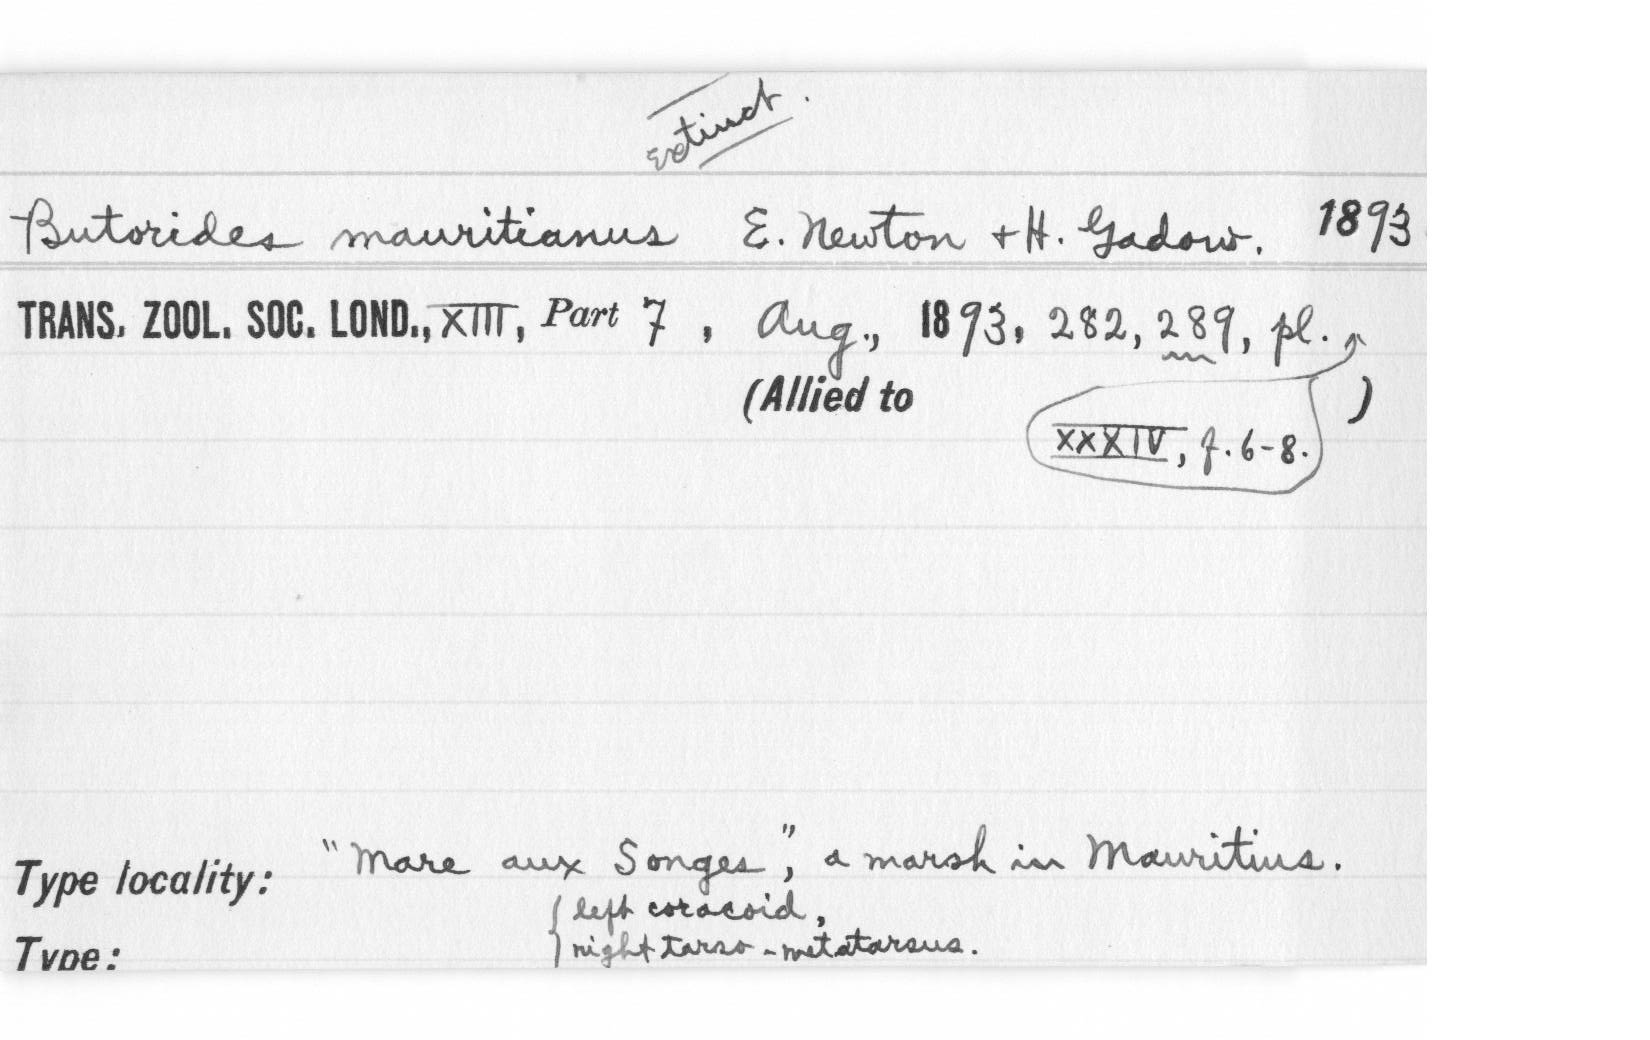 Extinct.
Butorides mauritianus E. Newton + H. Gadow. 1893
TRANS. ZOOL. SOC. LOND., XIII, Part 7, Aug., 1893, 282, 289, pl.
(Allied to )
XXXIV, f. 6-8.
Type locality: "Mare aux Songes", a marsh in Mauritius.
{ left coracoid,
Type: { right tarso-metatarsus.